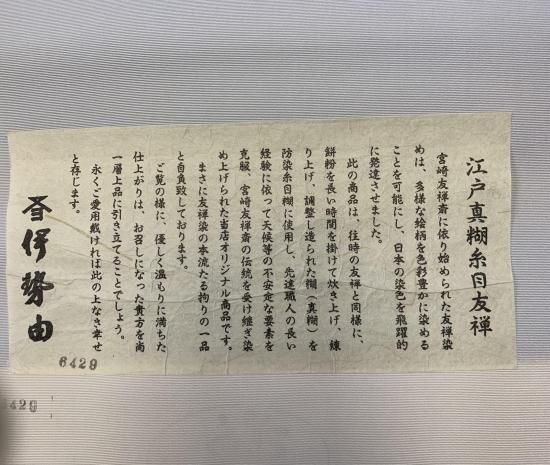 江戸真糊糸目友禅
宮崎友禅斎に依り始められた友禅染
めは、多様な絵柄を色彩豊かに染める
ことを可能にし、日本の染色を飛躍的
に発達させました。
此の商品は、往時の友禅と同様に、
餅粉を長い時間を掛けて炊き上げ、練
り上げ、調整し造られた糊（真糊）を
防染糸目糊に使用し、先達職人の長い
経験に依って天候等の不安定な要素を
克服、宮崎友禅斎の伝統を受け継ぎ染
め上げられた当店オリジナル商品です。
まさに友禅染の本流たる拘りの一品
と自負致しております。
ご覧の様に、優しく温もりに満ちた
仕上がりは、お召しになった貴方を尚
一層上品に引き立てることでしょう。
永くご愛用戴ければ此の上なき幸せ
と存じます。
伊勢由
6429
6429